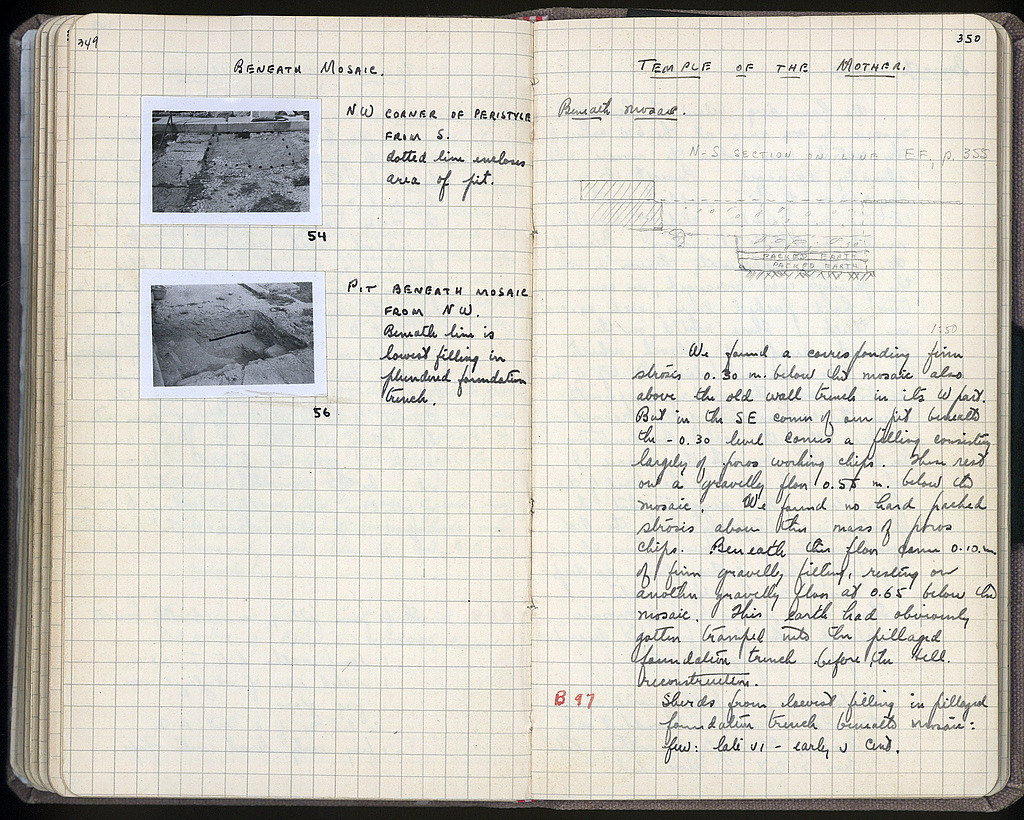 349
BENEATH MOSAIC.
NW CORNER OF PERISTYLE
FROM S.
dotted line encloses
area of pit.
54
PIT BENEATH MOSAIC
FROM NW.
Beneath line is
lowest filling in
plundered foundation
trench.
56
350
TEMPLE OF THE MOTHER.
Beneath mosaic.
N-S SECTION ON LINE EE, p. 355
PACKED EARTH
PACKED EARTH
1:50
We found a corresponding firm
strosis 0.30 m. below the mosaic also
above the old wall trench in its W part.
But in the SE corner of our pit beneath
the -0.30 level comes a filling consisting
largely of poros working chips. These rest
on a gravelly floor 0.55 m. below the
mosaic. We found no hard packed
strosis above this mass of poros
chips. Beneath this floor came 0.10 m
of firm gravelly filling, resting on
another gravelly floor at 0.65 below the
mosaic. This earth had obviously
gotten tramped into the pillaged
foundation trench before the Hell.
reconstruction.
B 97
Sherds from lowest filling in pillaged
foundation trench beneath mosaic:
few: late VI - early V cent.